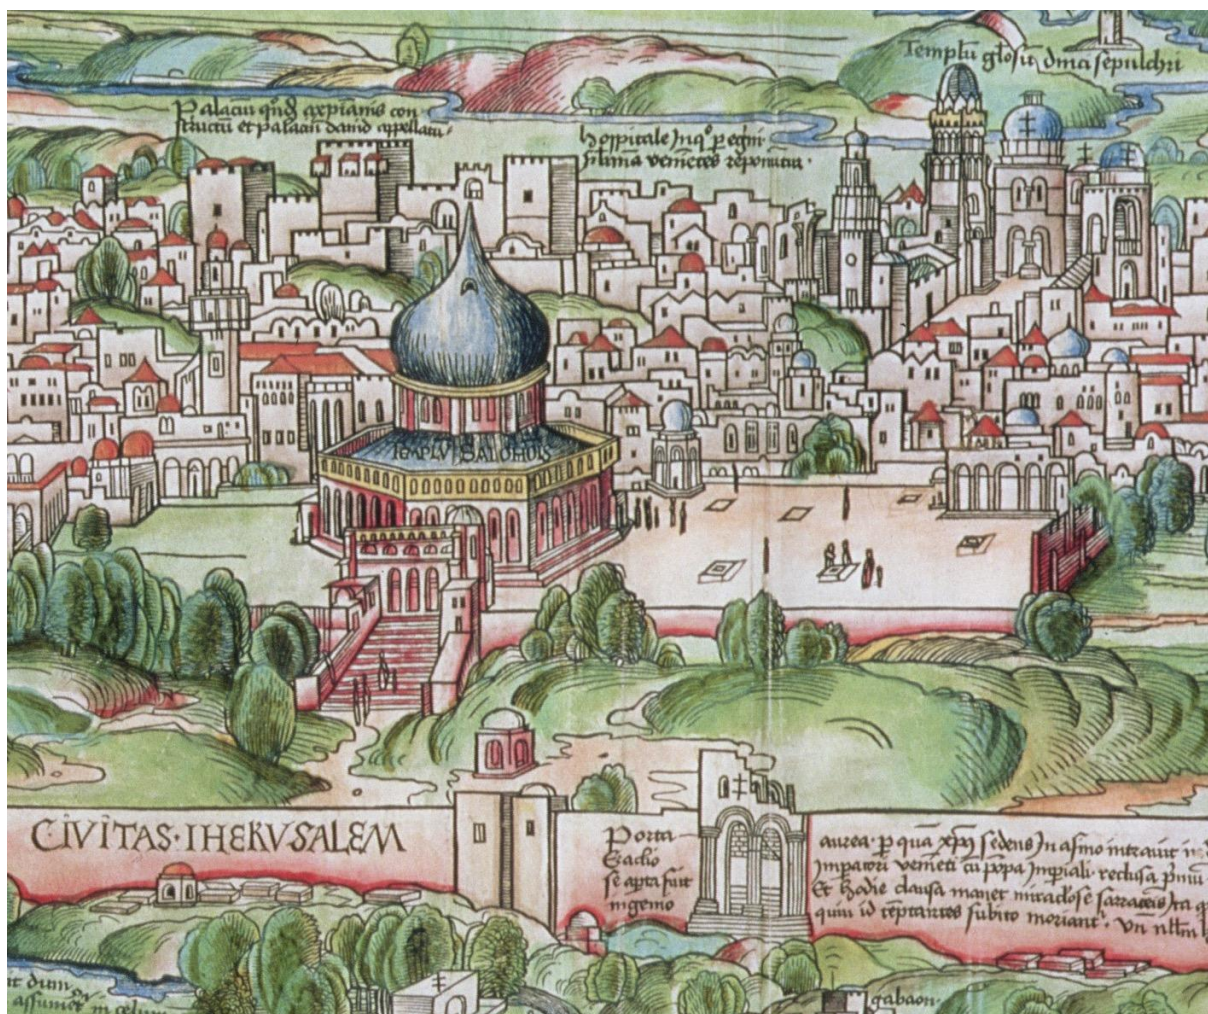 Templū głosū dnici sepulchri
Palaciū qđ a xpianis con
structū et palaciū dauid appellatū
hospitale In qº peegrini
TEMPLV SALOMOIS
CIVITAS·IHERVSALEM
Porta
Eraclio
se apta fuit
ingenio
aurea· p quā xps sedens In asino intrauit
Impatori veniēti cū pōpa Impiali· reclusa
Et hodie clausa manet miraclose sarracēis Ita
quiu id tēptantes subito moriant·
dum
assumet in celum
gabaon·